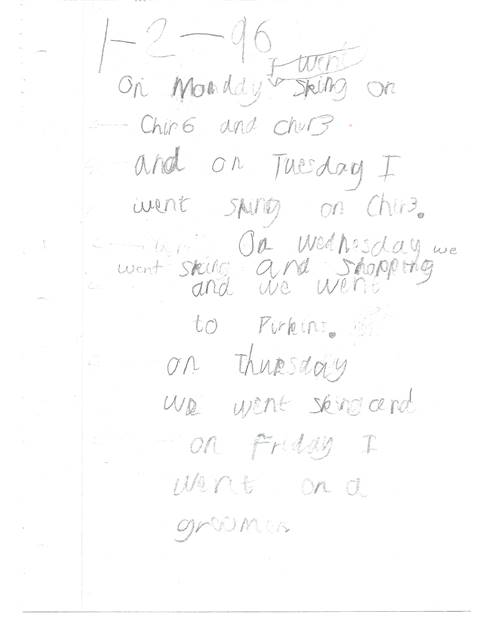 1-2-96
I went
On Monday sking on
Chir6 and chir3
and on Tuesday I
went sking on Chir3.
On Wednesday we
went sking and shopping
and we went
to
on Thursday
we went sking and
on Friday I
went on a
groomer